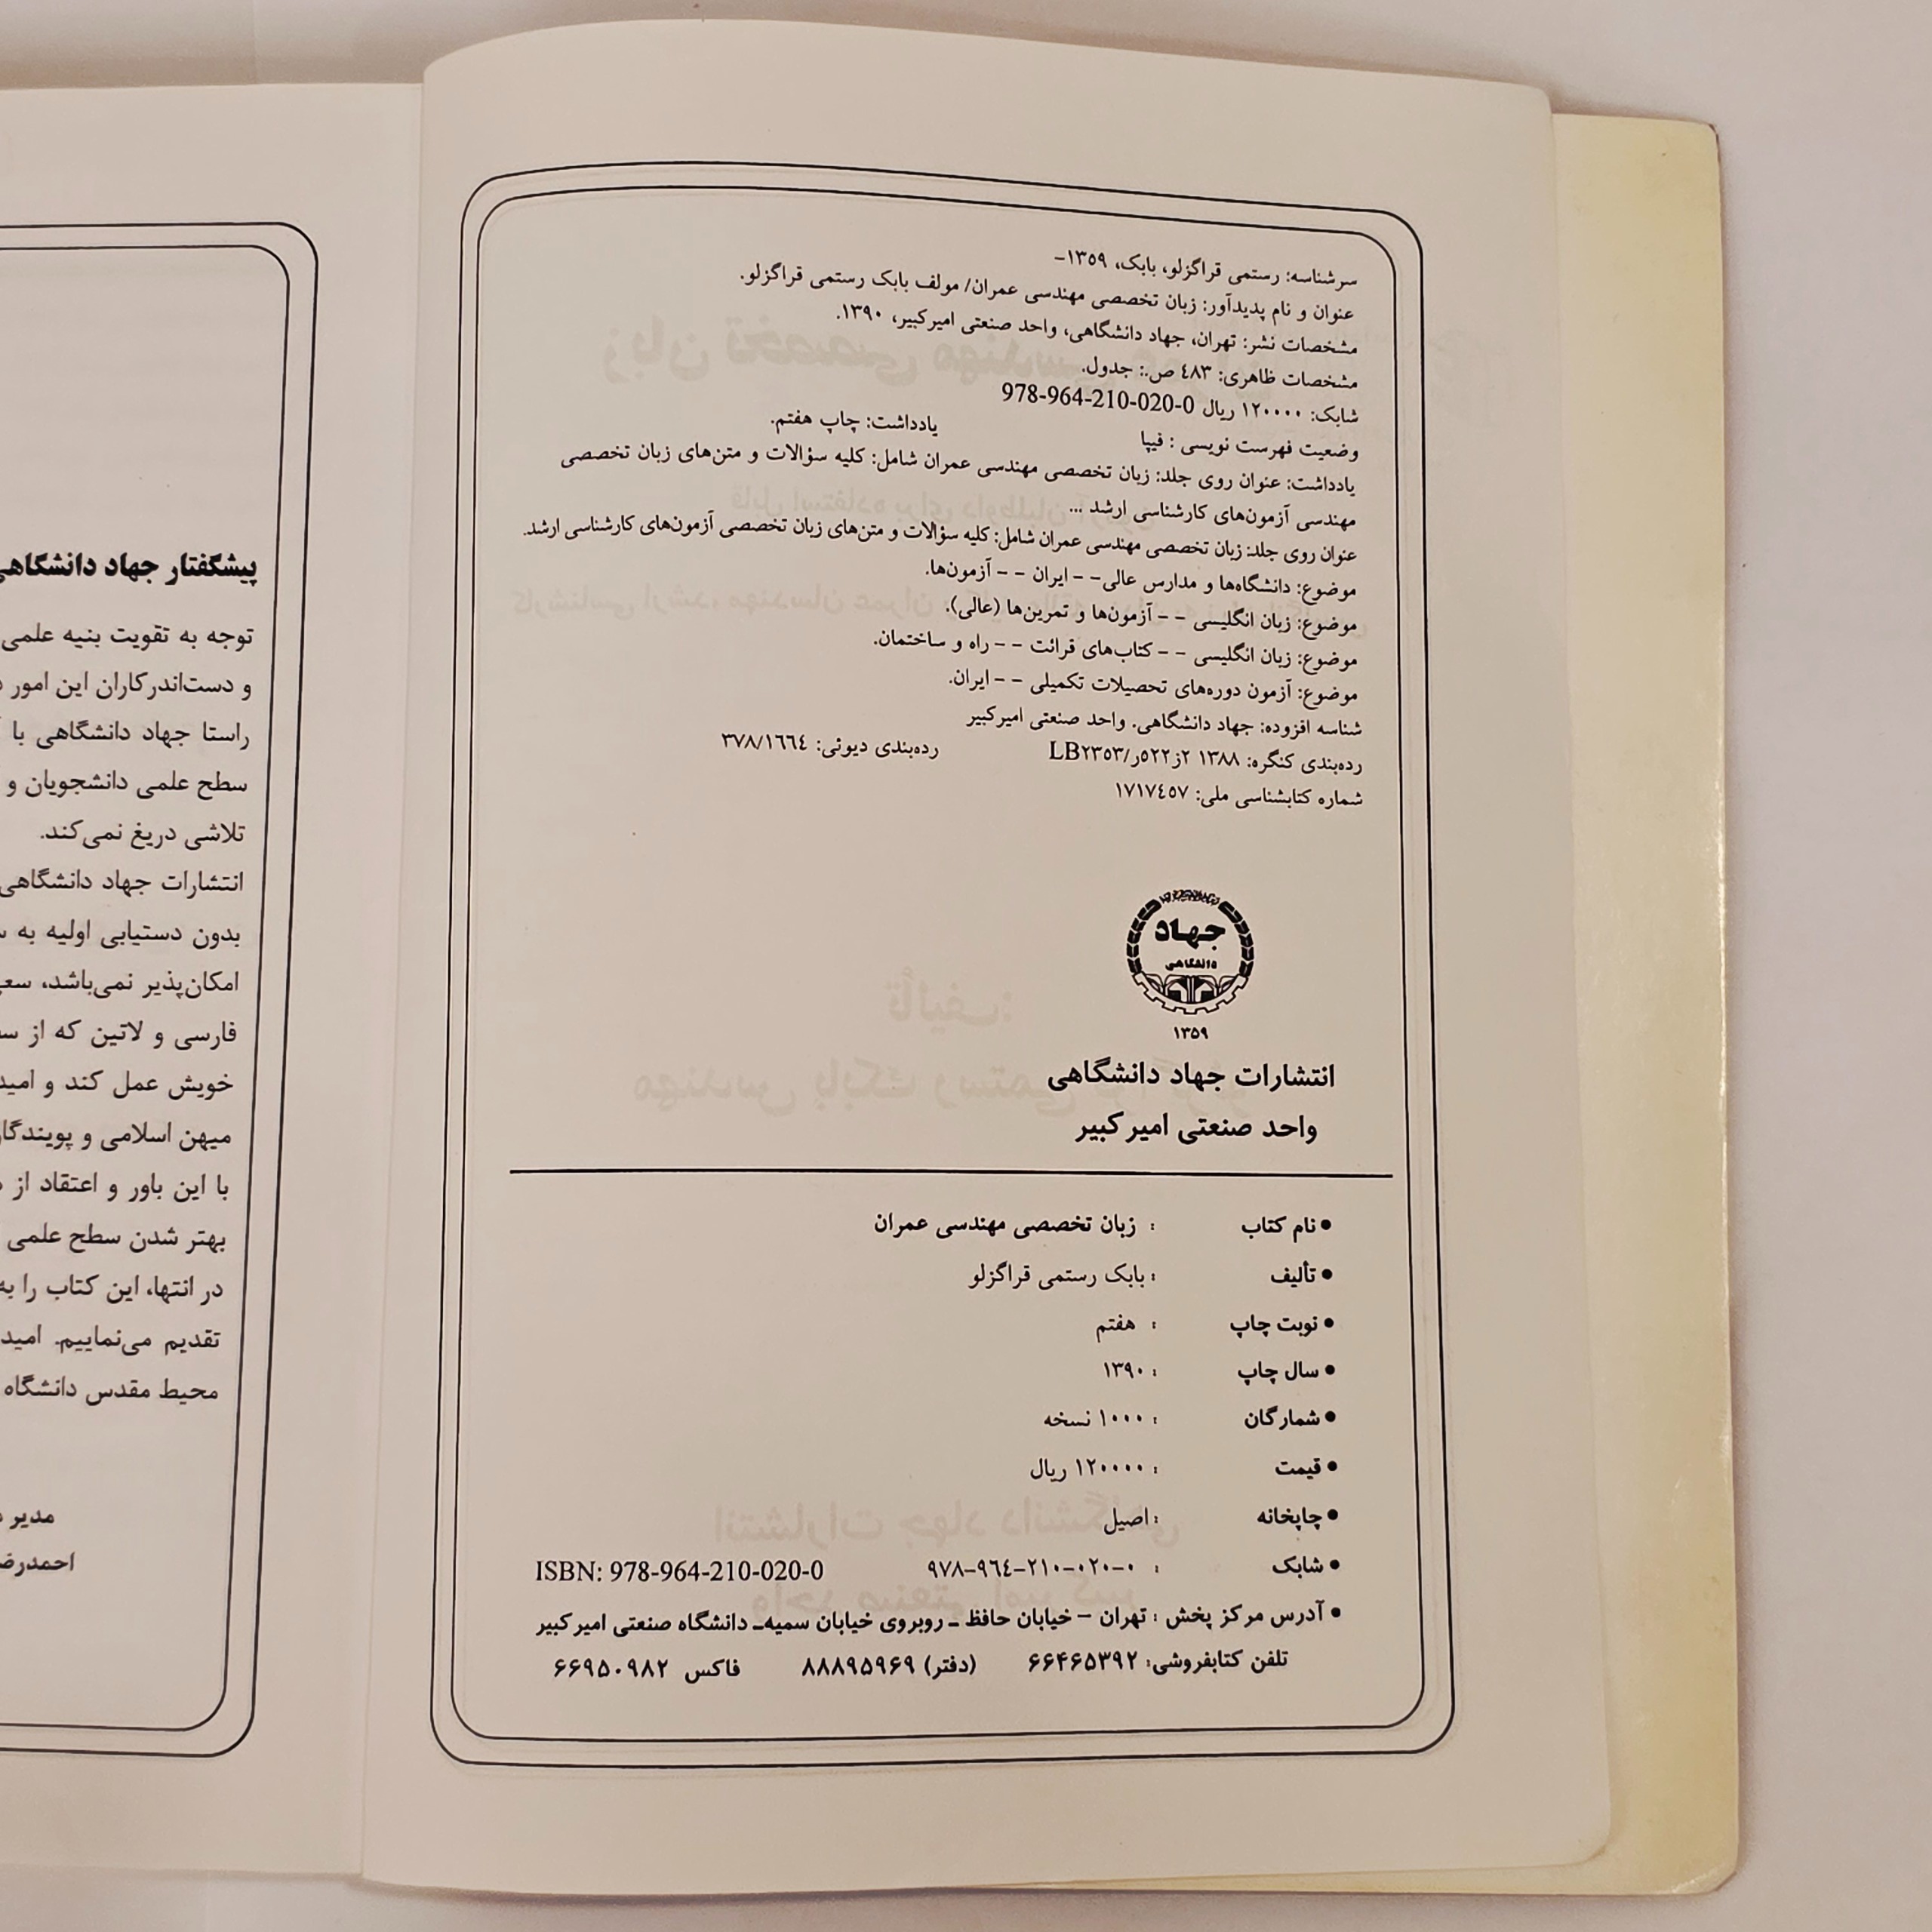 سرشناسه: رستمی قراگزلو، بابک، ۱۳۵۹-
عنوان و نام پدیدآور: زبان تخصصی مهندسی عمران/ مولف بابک رستمی قراگزلو.
مشخصات نشر: تهران، جهاد دانشگاهی، واحد صنعتی امیرکبیر، ۱۳۹۰.
مشخصات ظاهری: ٤٨٣ ص.: جدول.
شابک: ۱۲۰۰۰۰ ریال 978-964-210-020-0
وضعیت فهرست نویسی : فیپا یادداشت: چاپ هفتم.
یادداشت: عنوان روی جلد: زبان تخصصی مهندسی عمران شامل: کلیه سؤالات و متن‌های زبان تخصصی
مهندسی آزمون‌های کارشناسی ارشد ...
عنوان روی جلد: زبان تخصصی مهندسی عمران شامل: کلیه سؤالات و متن‌های زبان تخصصی آزمون‌های کارشناسی ارشد.
موضوع: دانشگاه‌ها و مدارس عالی- - ایران - - آزمون‌ها.
موضوع: زبان انگلیسی - - آزمون‌ها و تمرین‌ها (عالی).
موضوع: زبان انگلیسی - - کتاب‌های قرائت - - راه و ساختمان.
موضوع: آزمون دوره‌های تحصیلات تکمیلی - - ایران.
شناسه افزوده: جهاد دانشگاهی. واحد صنعتی امیرکبیر
رده‌بندی کنگره: ۱۳۸۸ ۲ز۵۲۲ر/LB۲۳۵۳ رده‌بندی دیوئی: ۳۷۸/۱۶۶٤
شماره کتابشناسی ملی: ۱۷۱۷٤۵۷
جهاد
دانشگاهی
۱۳۵۹
انتشارات جهاد دانشگاهی
واحد صنعتی امیرکبیر
● نام کتاب : زبان تخصصی مهندسی عمران
● تألیف : بابک رستمی قراگزلو
● نوبت چاپ : هفتم
● سال چاپ : ۱۳۹۰
● شمارگان : ۱۰۰۰ نسخه
● قیمت : ۱۲۰۰۰۰ ریال
● چاپخانه : اصیل
● شابک : ۹۷۸-۹۶٤-۲۱۰-۰۲۰-۰ ISBN: 978-964-210-020-0
● آدرس مرکز پخش : تهران - خیابان حافظ ـ روبروی خیابان سمیه‌ـ دانشگاه صنعتی امیرکبیر
تلفن کتابفروشی: ۶۶۴۶۵۳۹۲ (دفتر) ۸۸۸۹۵۹۶۹ فاکس ۶۶۹۵۰۹۸۲
پیشگفتار جهاد دانشگاهی
توجه به تقویت بنیه علمی
و دست‌اندرکاران این امور
راستا جهاد دانشگاهی با
سطح علمی دانشجویان و
تلاشی دریغ نمی‌کند.
انتشارات جهاد دانشگاهی
بدون دستیابی اولیه به
امکان‌پذیر نمی‌باشد،
فارسی و لاتین که از
خویش عمل کند و
میهن اسلامی و
با این باور و اعتقاد از
بهتر شدن سطح علمی
در انتها، این کتاب را
تقدیم می‌نماییم.
محیط مقدس دانشگاه
مدیر